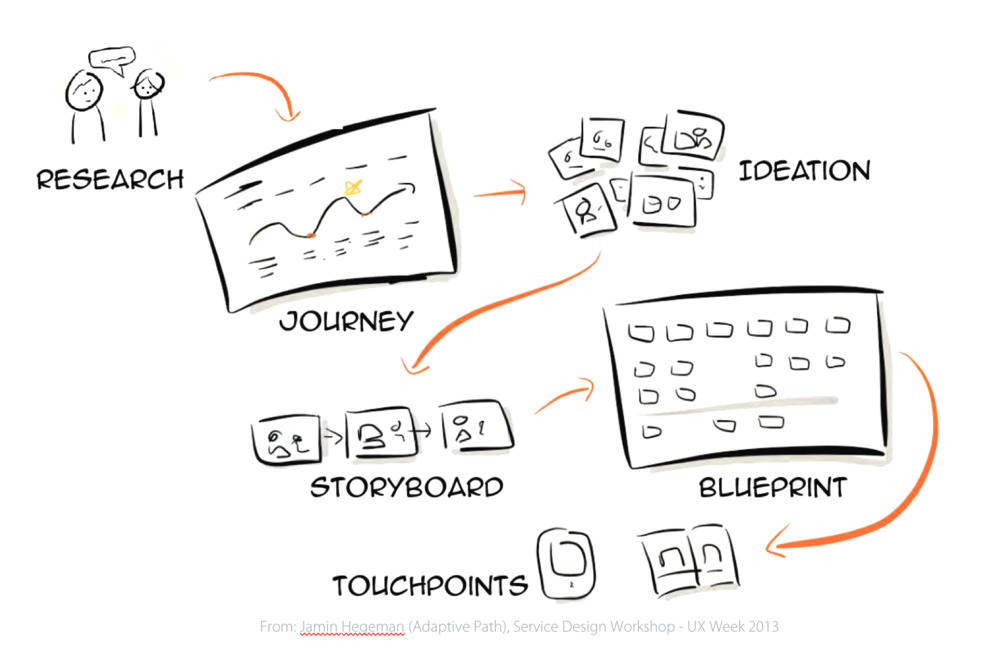 RESEARCH
JOURNEY
IDEATION
STORYBOARD
BLUEPRINT
TOUCHPOINTS
From: Jamin Hegeman (Adaptive Path), Service Design Workshop - UX Week 2013